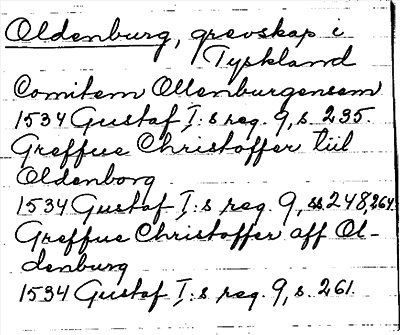 Oldenburg, grevskap i
Tyskland
Comitem Ollenburgensem
1534 Gustaf I:s reg. 9, s. 235.
Greffue Christoffer till
Oldenborg
1534 Gustaf I:s reg. 9, ss 248, 264.
Greffue Christoffer aff Ol-
denburg
1534 Gustaf I:s reg. 9, s. 261.